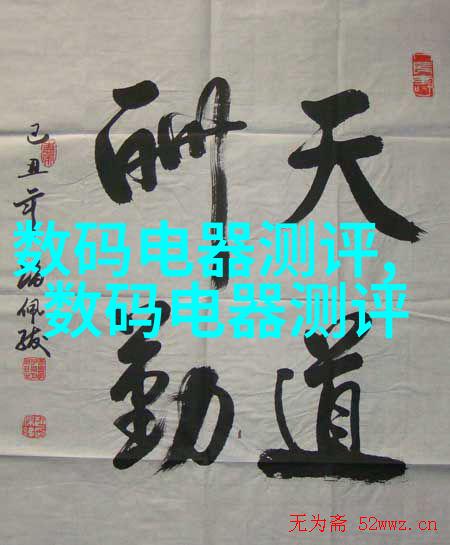 天道
酬勤
己丑年
数码电器测评,
数码电器测评
无为斋 52wwz.cn